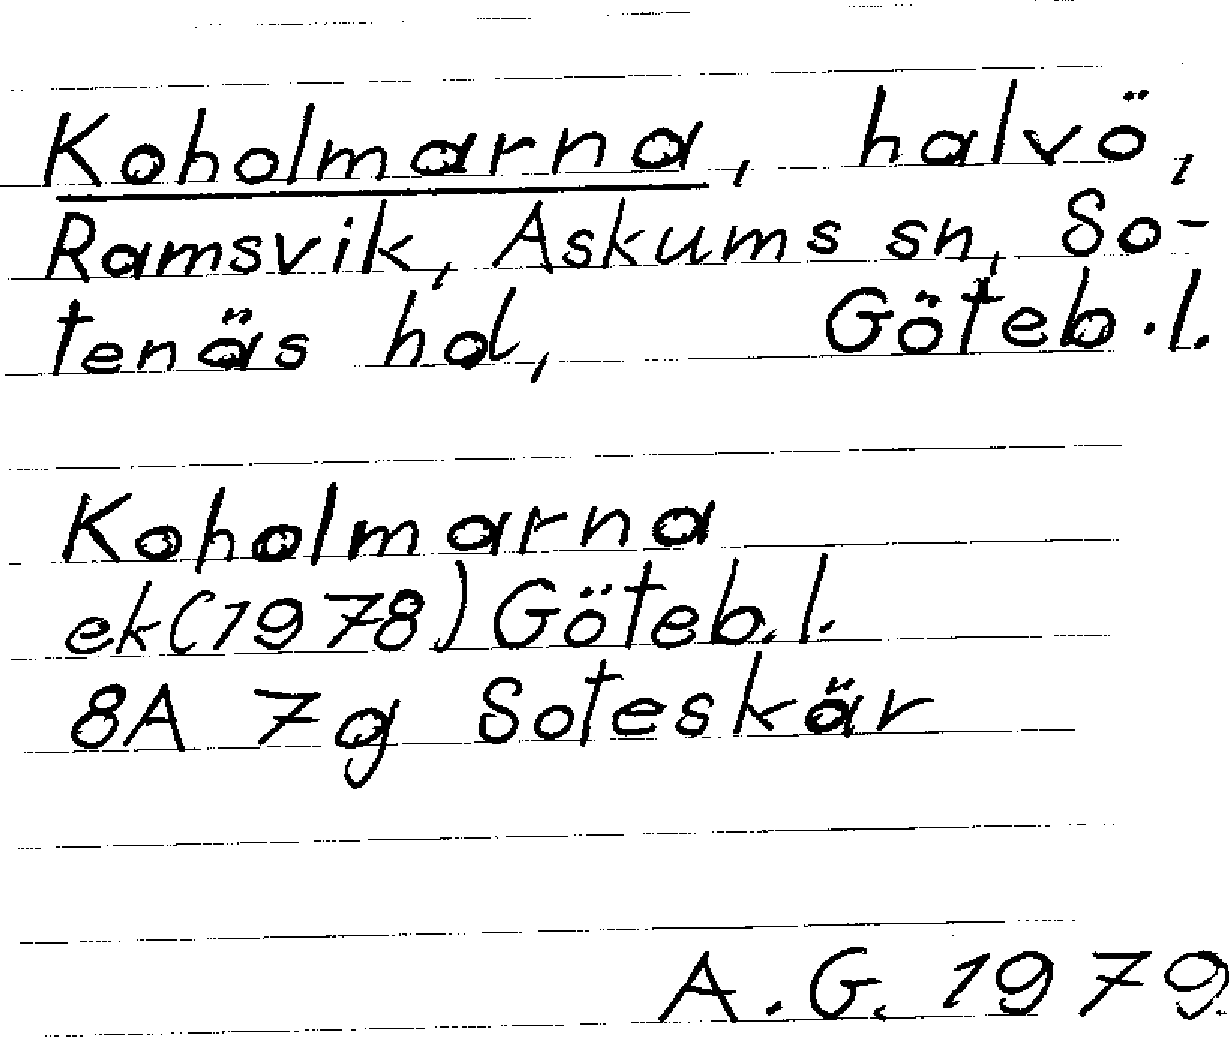 Koholmarna, halvö,
Ramsvik, Askums sn, So-
tenäs hd, Göteb.l.
Koholmarna
ek(1978) Göteb.l.
8A 7g Soteskär
A.G. 1979.